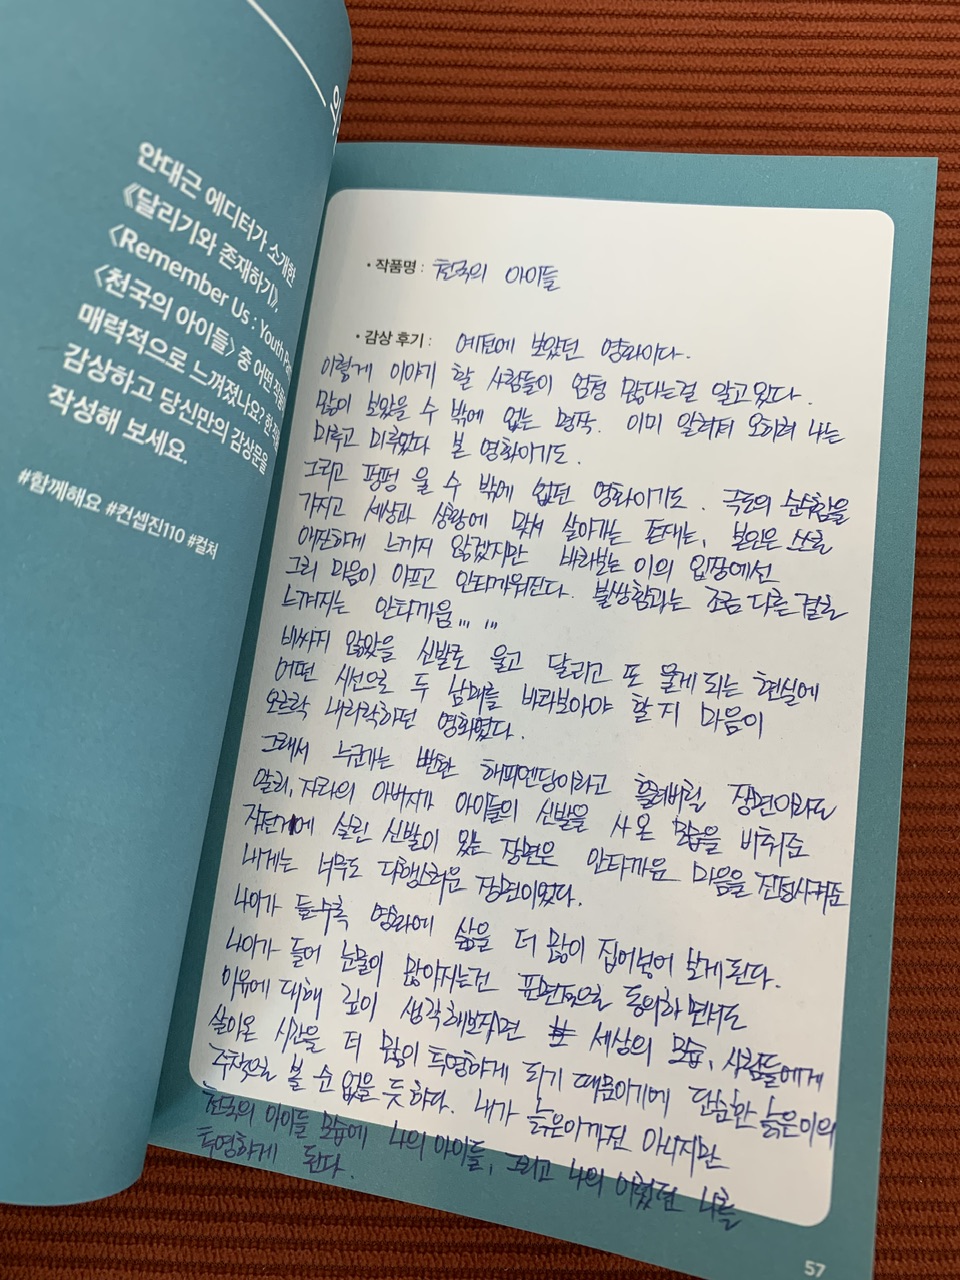 안대근 에디터가 소개한
《달리기와 존재하기》,
〈Remember Us : Youth
〈천국의 아이들〉 중 어떤
매력적으로 느껴졌나요?
감상하고 당신만의 감상문을
작성해 보세요.
#함께해요 #컨셉진110 #컬처
• 작품명 : 천국의 아이들
• 감상 후기 : 예전에 보았던 영화이다.
이렇게 이야기 할 사람들이 엄청 많다는걸 알고있다.
많이 보았을 수 밖에 없는 명작. 이미 알려져 오히려 나는
미루고 미루었다 본 영화이기도.
그리고 펑펑 울 수 밖에 없던 영화이기도. 극도의 순수함을
가지고 세상과 상황에 맞서 살아가는 존재는, 본인은 스스로
애잔하게 느끼지 않겠지만 바라보는 이의 입장에선
그리 마음이 아프고 안타까워진다. 불쌍함과는 조금 다른 결로
느껴지는 안타까움,,, ,,,
비싸지 않았을 신발로 울고 달리고 또 울게 되는 현실에
어떤 시선으로 두 남매를 바라보아야 할지 마음이
오르락 내리락하던 영화였다.
그래서 누군가는 뻔한 해피엔딩이라고 흘려버릴 장면이라도
알리, 자라의 아버지가 아이들의 신발을 사 온 모습을 비춰준
자전거에 실린 신발이 있는 장면은 안타까운 마음을 진정시켜준
내게는 너무도 다행스러운 장면이었다.
나이가 들수록 영화에 삶을 더 많이 집어넣어 보게된다.
나이가 들어 눈물이 많아지는건 표면적으로 동의하면서도
이유에 대해 깊이 생각해보자면 세상의 모습, 사람들에게
살아온 시간을 더 많이 투영하게 되기 때문이기에 단순한 늙은이의
주책으로 볼 순 없을 듯 하다. 내가 늙은이까진 아니지만
천국의 아이들 모습에 나의 아이들, 그리고 나의 어렸던 나를
투영하게 된다.
57